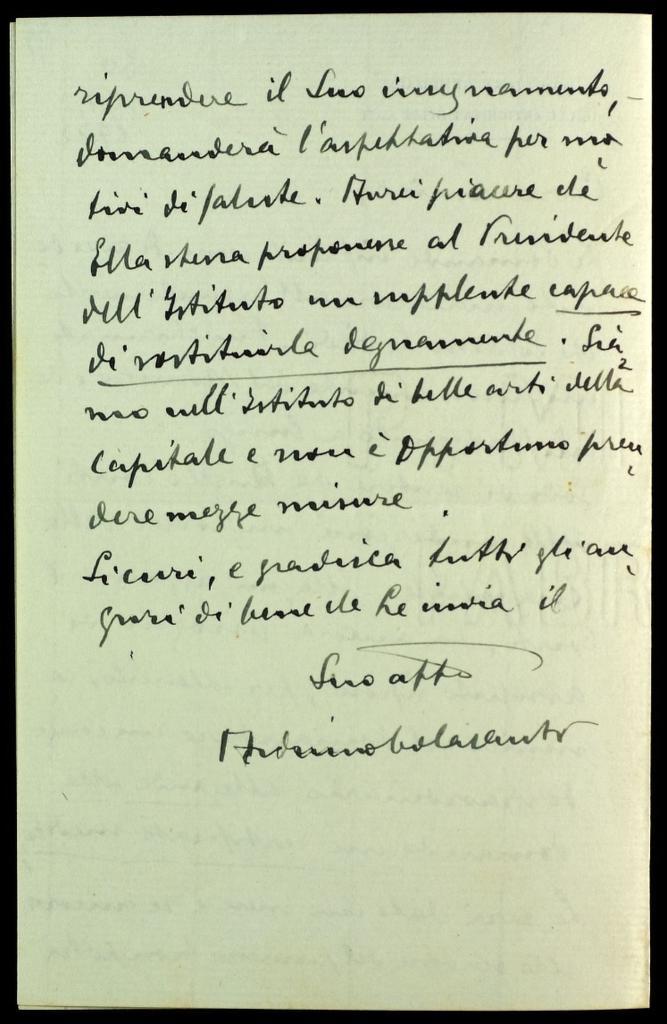 riprendere il Suo insegnamento, -
domanderà l'aspettativa per mo-
tivi di salute. Avrei piacere che
Ella stessa proponesse al Presidente
dell'Istituto un supplente capace
di sostituirla degnamente. Sia-
mo nell'Istituto di belle arti della
Capitale e non è opportuno pren-
dere mezze misure.
Si curi, e gradisca tutti gli au-
guri di bene che Le invia il
Suo affo
Arduino Colasanti